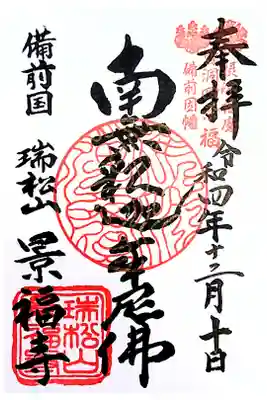 奉拝
令和四年十二月十日
南無釈迦牟尼佛
備前国 瑞松山 景福寺
瑞松山
備前国